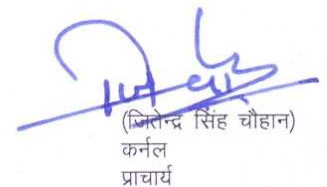 (जितेन्द्र सिंह चौहान)
कर्नल
प्राचार्य